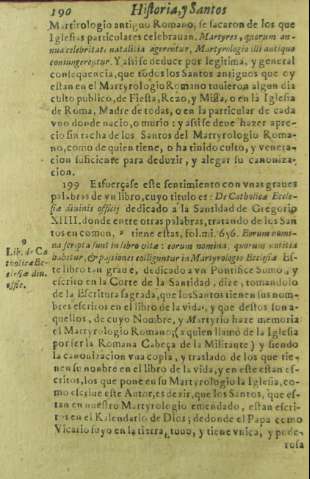 190 Historia, y Santos
Martirologio antiguo Romano, se sacaron de los que
Iglesias particulares celebrauan. Martyres, quorum an-
nua celebritas natalitia agerentur, Martyrologio illi antiquo
coniungerentur. Y assi se deduce por legitima, y general
consequencia, que todos los Santos antiguos que oy
estan en el Martyrologio Romano tuuieron algun dia
culto publico, de Fiesta, Rezo, y Missa, o en la Iglesia
de Roma, Madre de todas, o en la particular de cada
vno donde nacio, o murio: y assi se deve hazer apre-
cio sin tacha de los Santos del Martyrologio Roma-
no, como de quien tiene, o ha tinido culto, y venera-
cion suficiente para deduzir, y alegar su canoniza-
cion.
199 Esfuerçase este sentimiento con vnas graues
palabras de vn libro, cuyo titulo es: De Catholicæ Eccle-
siæ diuinis officijs dedicado a la Santidad de Gregorio
XIIII. donde entre otras palabras, tratando de los San-
tos en comun, tiene estas, fol. mi. 656. Eorum nomi-
na scripta sunt in libro vitæ: eorum nomina, quorum
habitur, & passiones colliguntur in Martyrologio Ecclesiæ Es-
te libro tan graue, dedicado a vn Pontifice Sumo, y
escrito en la Corte de la Santidad, dize, tomandolo
de la Escritura sagrada, que los Santos tienen sus nom-
bres escritos en el libro de la vida, y que destos son a-
quellos, de cuyo Nombre, y Martyrio haze memoria
el Martyrologio Romano; (a quien llamó de la Iglesia
por ser la Romana Cabeça de la Militante) y siendo
la canonizacion vna copia, y traslado de los que tie-
nen su nonbre en el libro de la vida, y en este estan es-
critos, los que pone en su Martyrologio la Iglesia, co-
mo este Autor, es dezir, que los Santos, que es-
tan en nuestro Martyrologio emendado, estan escri-
tos en el Kalendario de Dios; dedonde el Papa como
Vicario suyo en la tierra, tuuo, y tiene vnica, y pode-
rosa
9
Lib. de Ca
tholicæ Ec-
clesiæ diu.
offic.